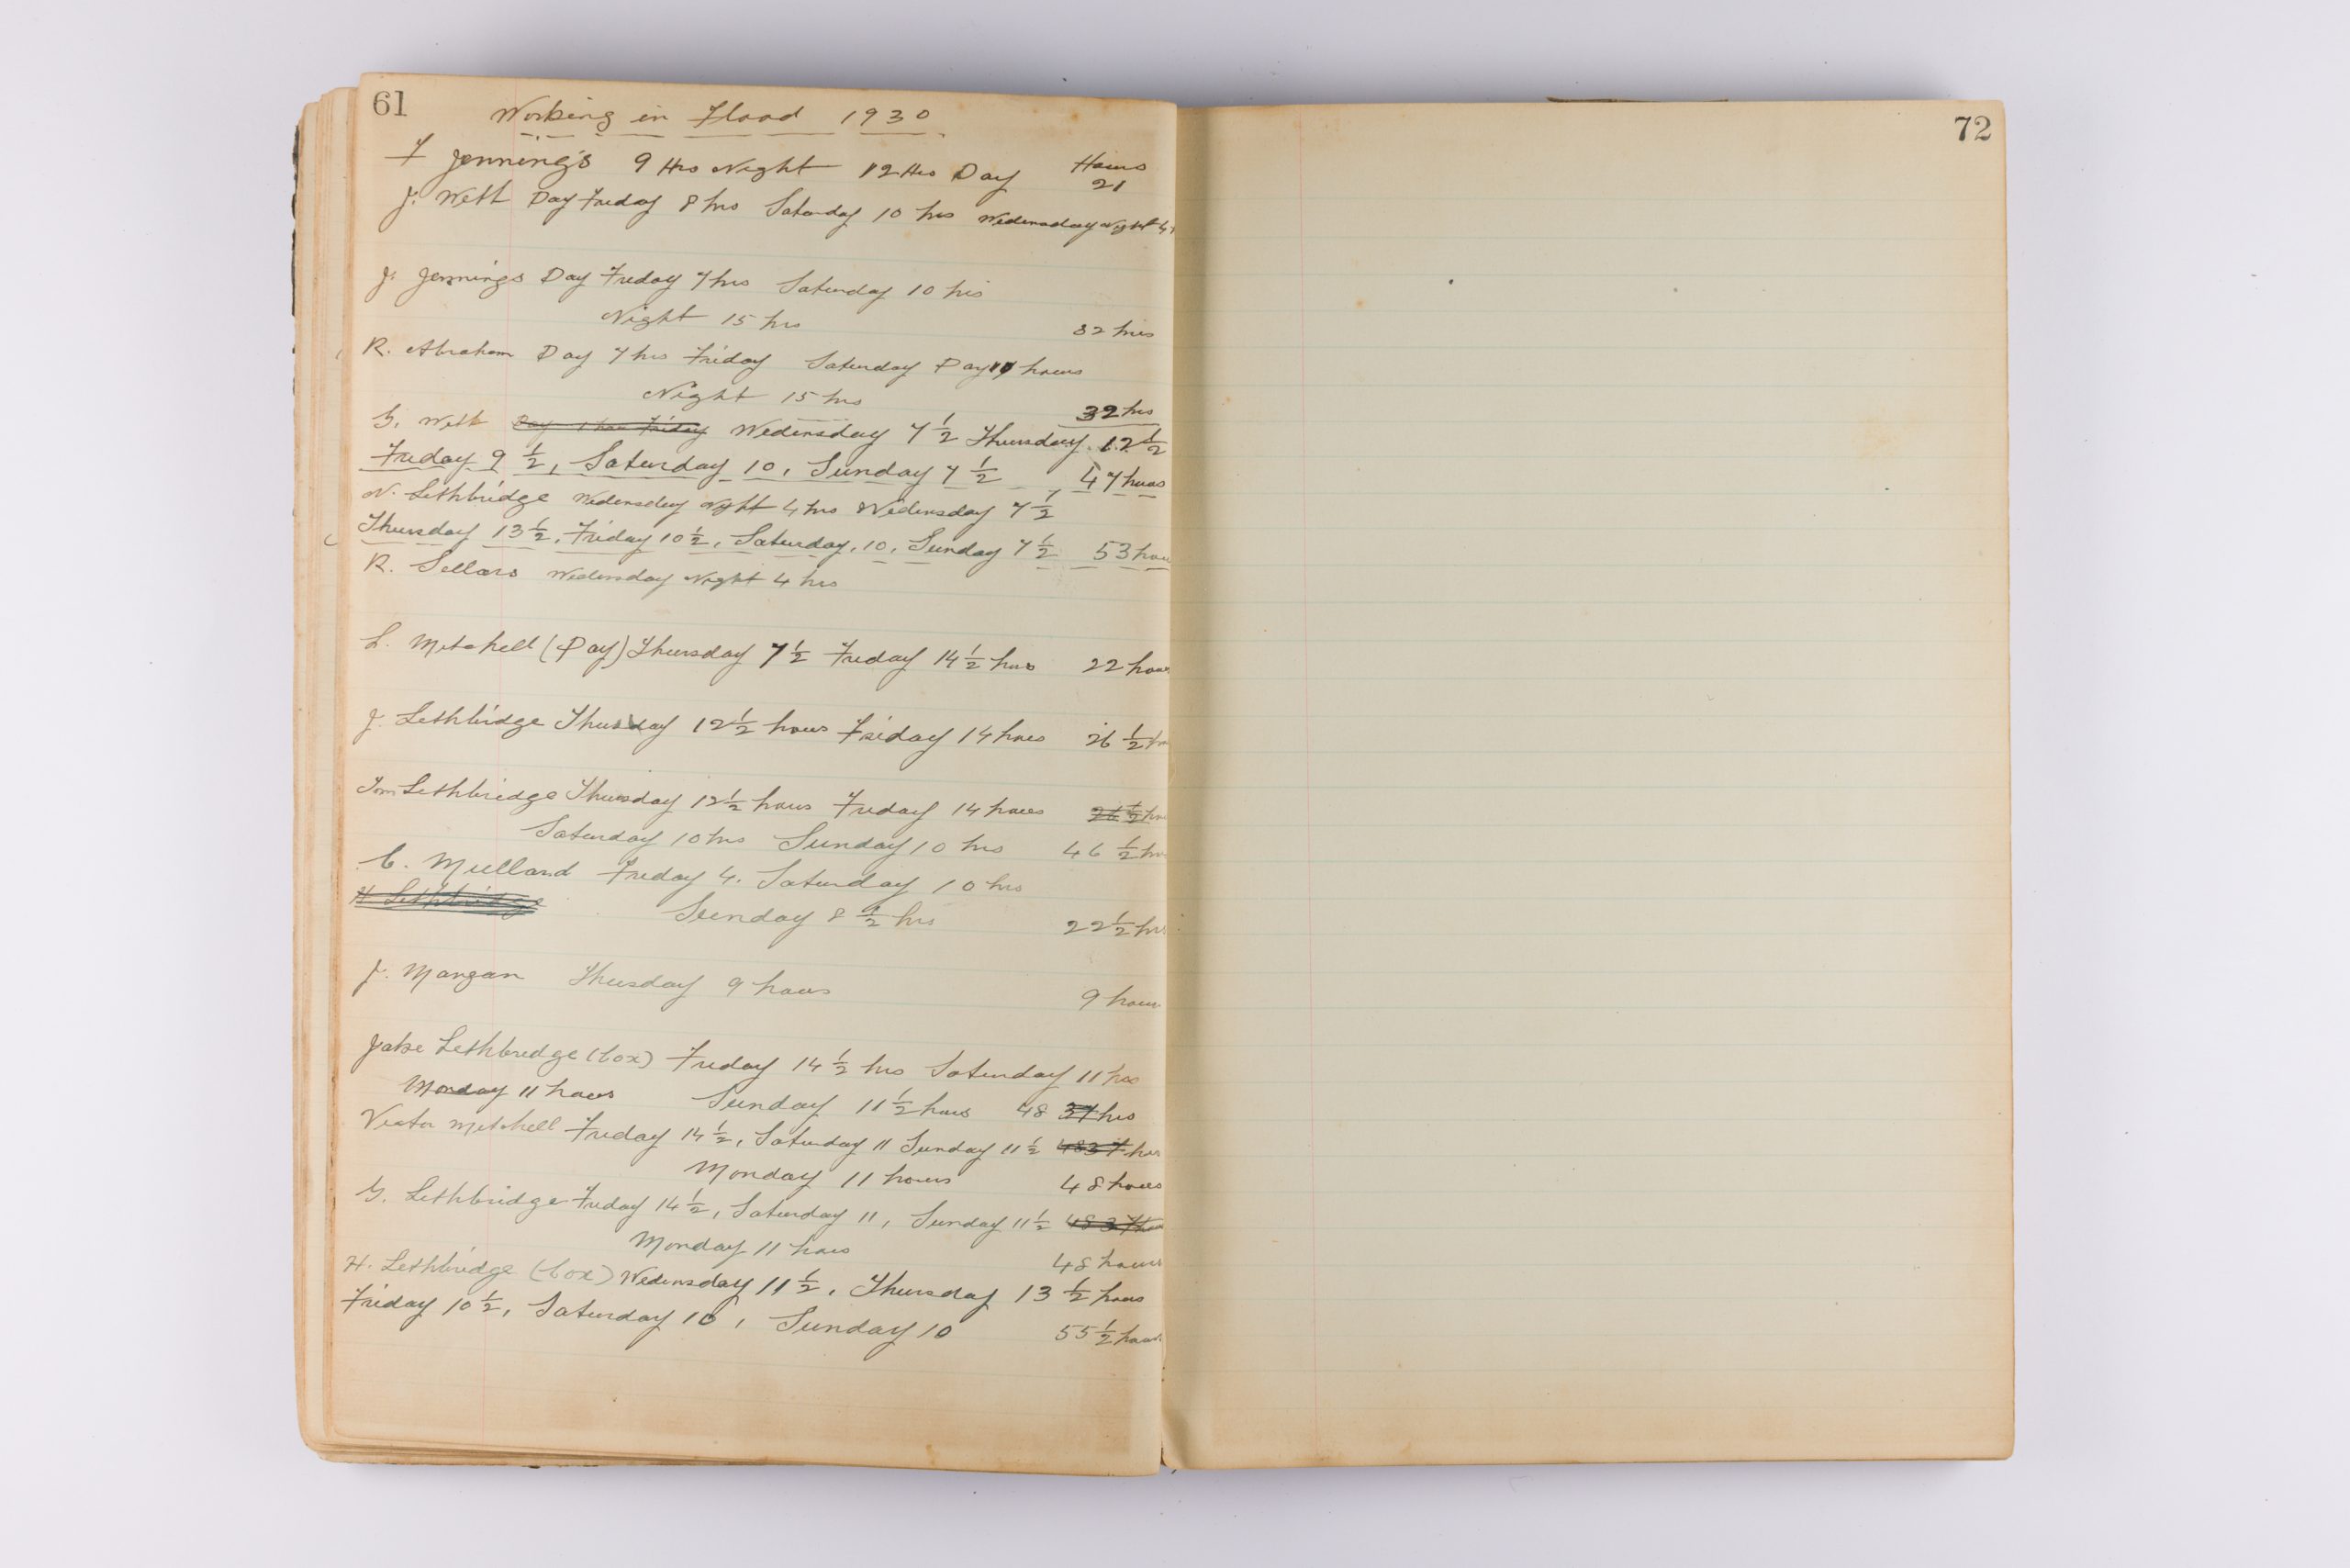 61
Working in Flood 1930
F Jennings 9 Hrs Night 12 Hrs Day Hours 21
J. Webb Day Friday 8 hrs Saturday 10 hrs Wedensday Night 4
J. Jennings Day Friday 7 hrs Saturday 10 hrs
Night 15 hrs 32 hrs
R. Abraham Day 7 hrs Friday Saturday Day 10 hours
Night 15 hrs 32 hrs
G. Webb Day 1 hour Friday Wedensday 7 1/2 Thursday 12 1/2
Friday 9 1/2, Saturday 10, Sunday 7 1/2 47 hours
N. Lethbridge Wedensday Night 4 hrs Wedensday 7 1/2
Thursday 13 1/2, Friday 10 1/2, Saturday, 10, Sunday 7 1/2 53 hours
R. Sellars Wedensday Night 4 hrs
L. Mitchell (Day) Thursday 7 1/2 Friday 14 1/2 hrs 22 hours
J. Lethbridge Thursday 12 1/2 hours Friday 14 hours 26 1/2 hrs
Tom Lethbridge Thursday 12 1/2 hours Friday 14 hours 26 1/2 hrs
Saturday 10 hrs Sunday 10 hrs 46 1/2 hrs
C. Mulland Friday 4. Saturday 10 hrs
H Lethbridge Sunday 8 1/2 hrs 22 1/2 hrs
J. Mangan Thursday 9 hours 9 hours
Jake Lethbridge (box) Friday 14 1/2 hrs Saturday 11 hrs
Monday 11 hours Sunday 11 1/2 hours 48 37 hrs
Victor Mitchell Friday 14 1/2, Saturday 11 Sunday 11 1/2 48 37 hrs
Monday 11 hours 48 hours
G. Lethbridge Friday 14 1/2, Saturday 11, Sunday 11 1/2 48 37 hours
Monday 11 hours 48 hours
H. Lethbridge (box) Wedensday 11 1/2, Thursday 13 1/2 hours
Friday 10 1/2, Saturday 10, Sunday 10 55 1/2 hours
72